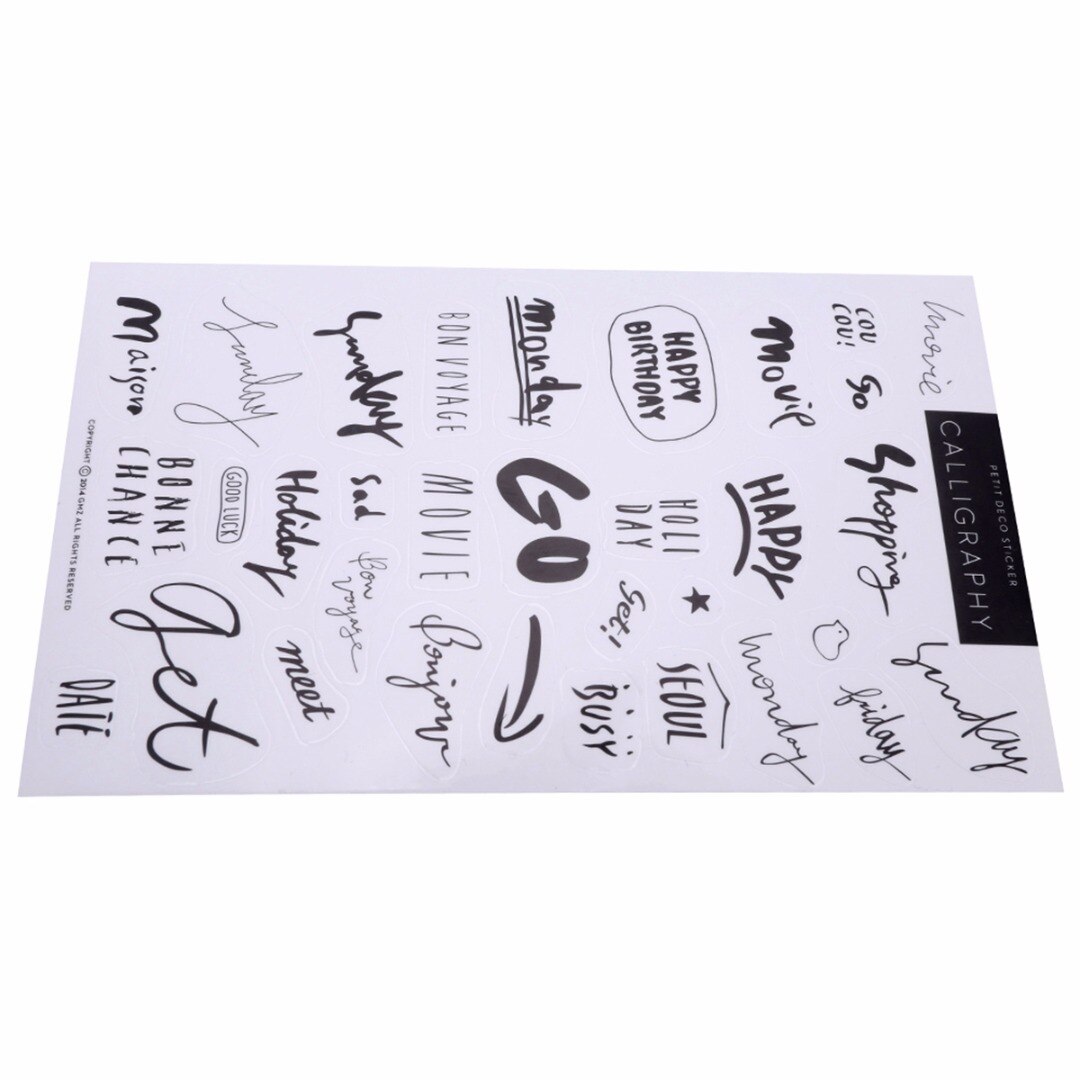 movie
PETIT DECO STICKER
CALLIGRAPHY
Sunday
COU
COU!
So
Shopping
friday
Movie
HAPPY
monday
HAPPY
BIRTHDAY
HOLI
DAY
Set!
SEOUL
monday
GO
BUSY
BON VOYAGE
MOVIE
Bonjour
Sunday
Sad
Bon
Voyage
Sunday
Holiday
meet
GOOD LUCK
Maison
BONNE
CHANCE
get
DATE
COPYRIGHT © 2014 GMZ ALL RIGHTS RESERVED